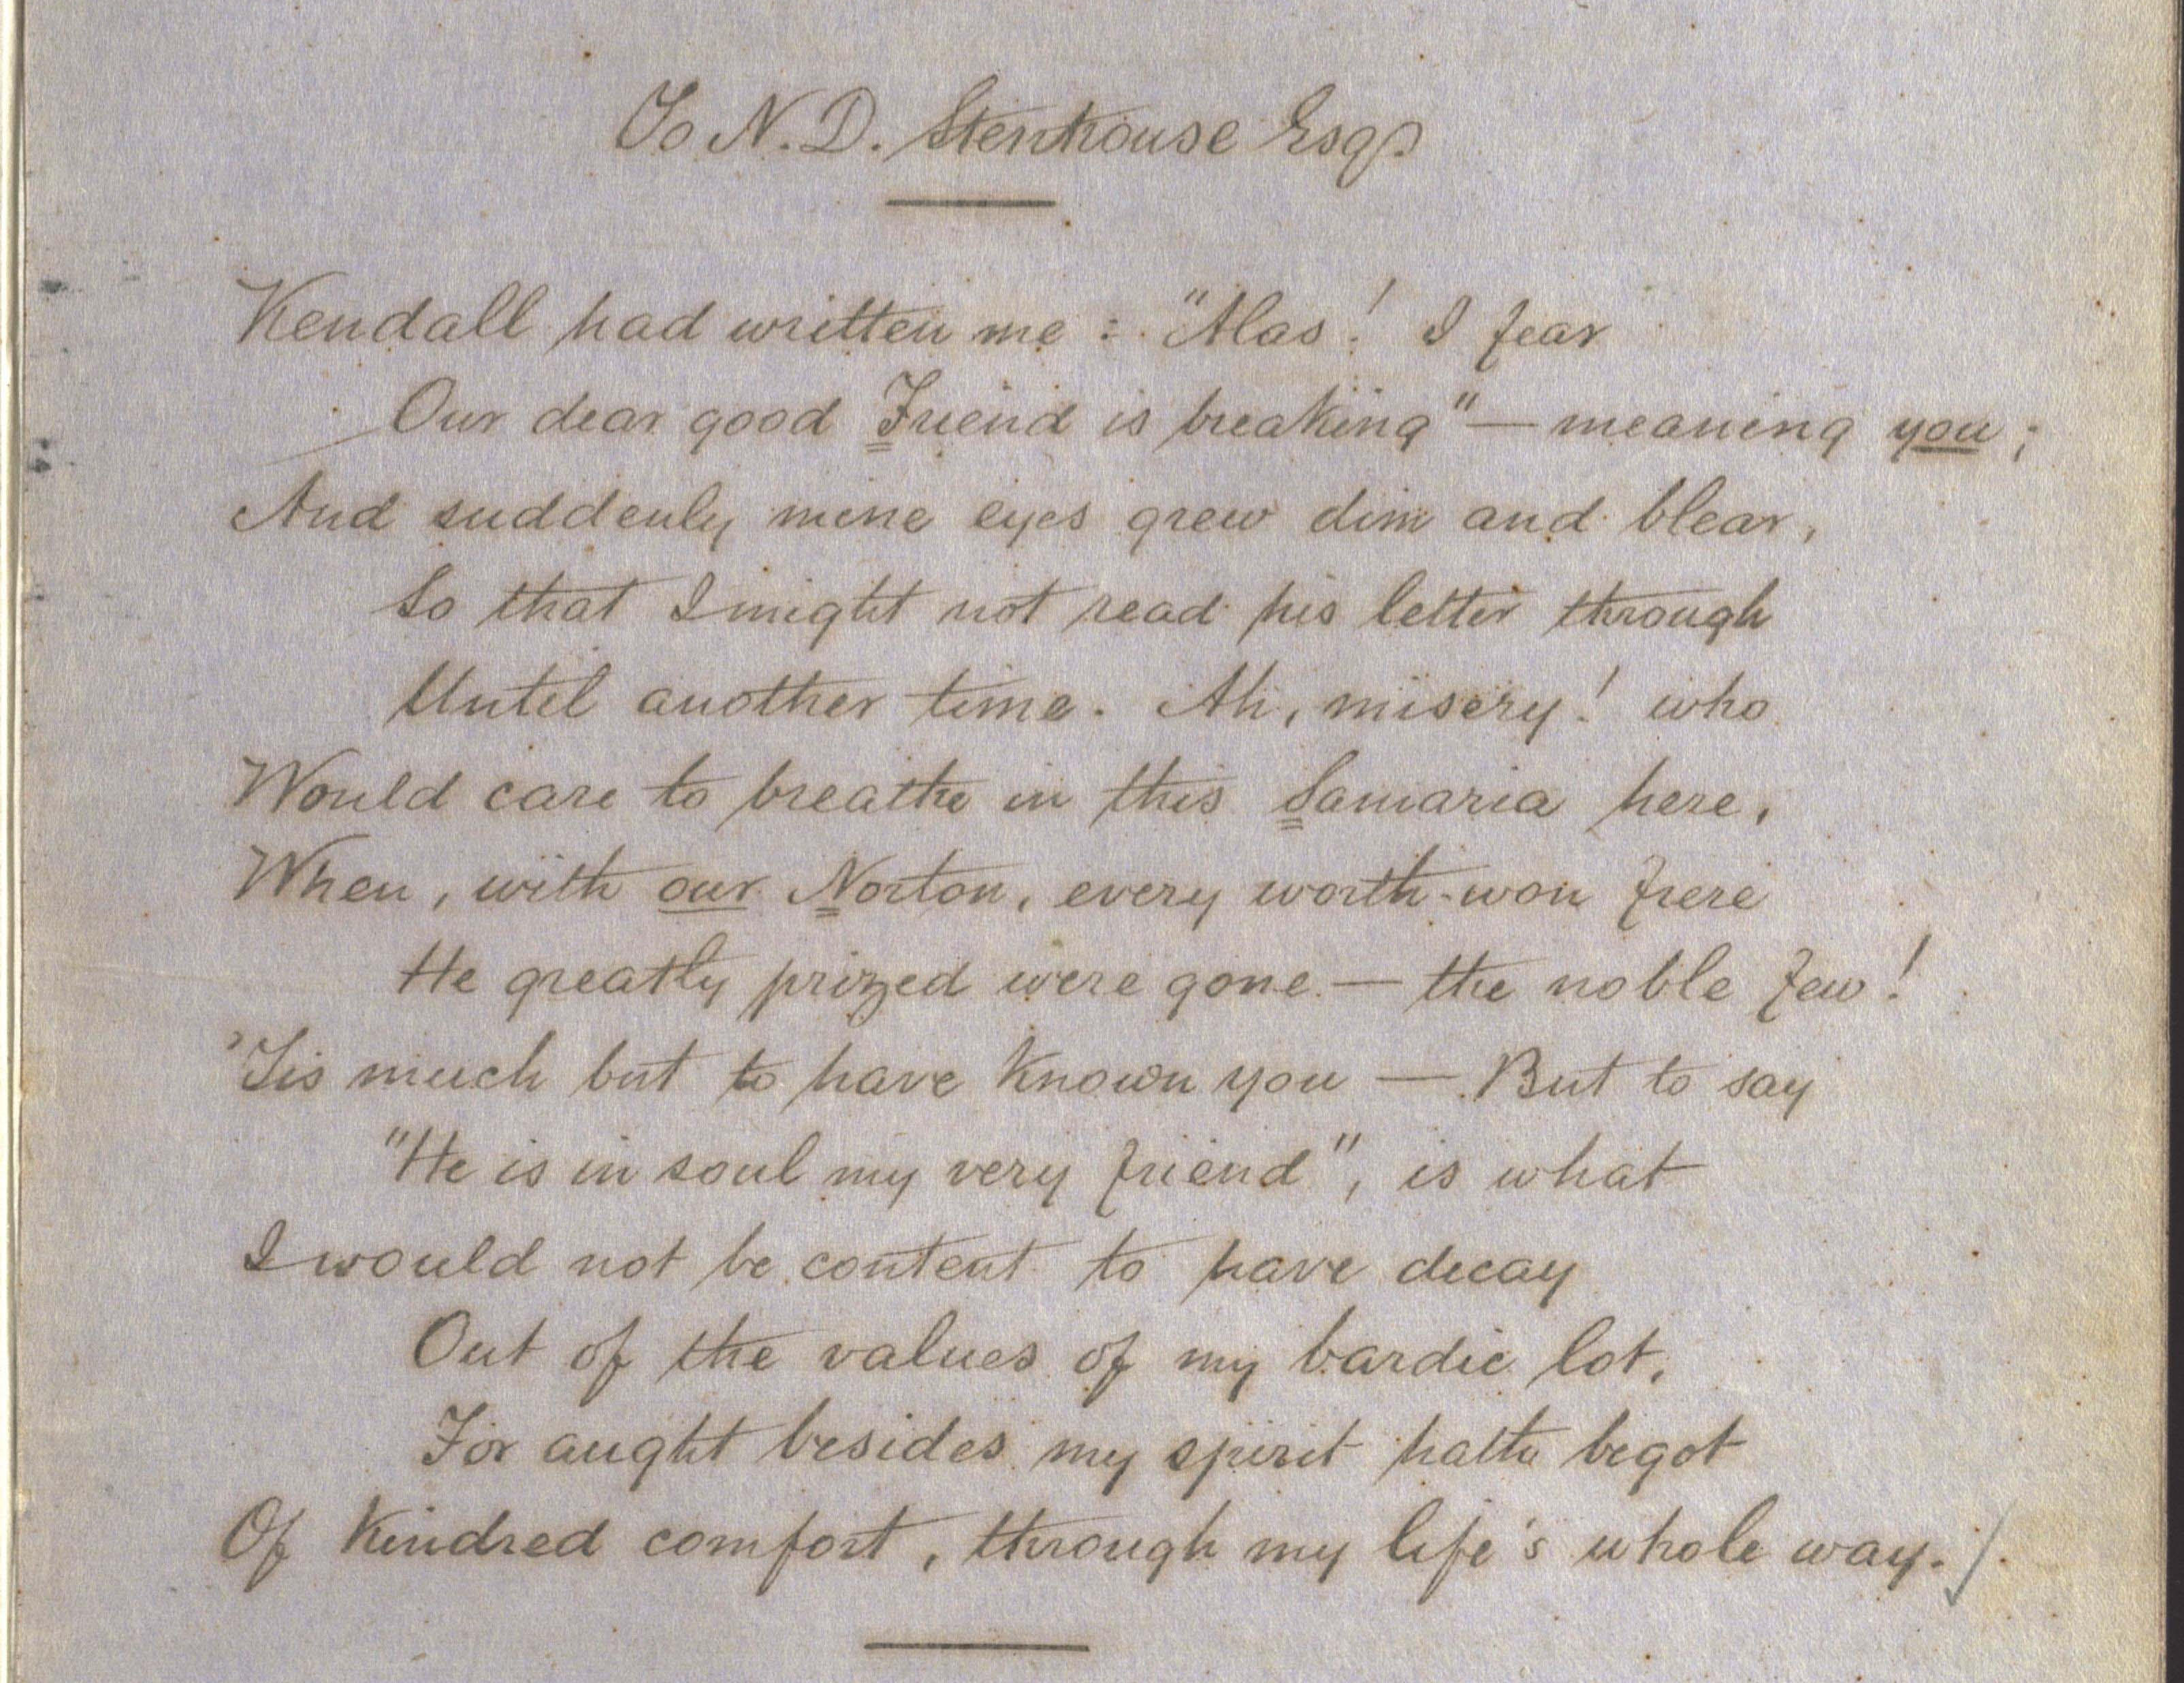 To N. D. Stenhouse Esqr
Kendall had written me : "Alas! I fear
Our dear good Friend is breaking" — meaning you ;
And suddenly mine eyes grew dim and blear,
So that I might not read his letter through
Until another time. Ah, misery! who
Would care to breathe in this Samaria here,
When, with our Norton, every worth-won frere
He greatly prized were gone — the noble few!
'Tis much but to have known you — But to say
"He is in soul my very friend", is what
I would not be content to have decay
Out of the values of my bardic lot,
For aught besides my spirit hath begot
Of Kindred comfort, through my life's whole way.